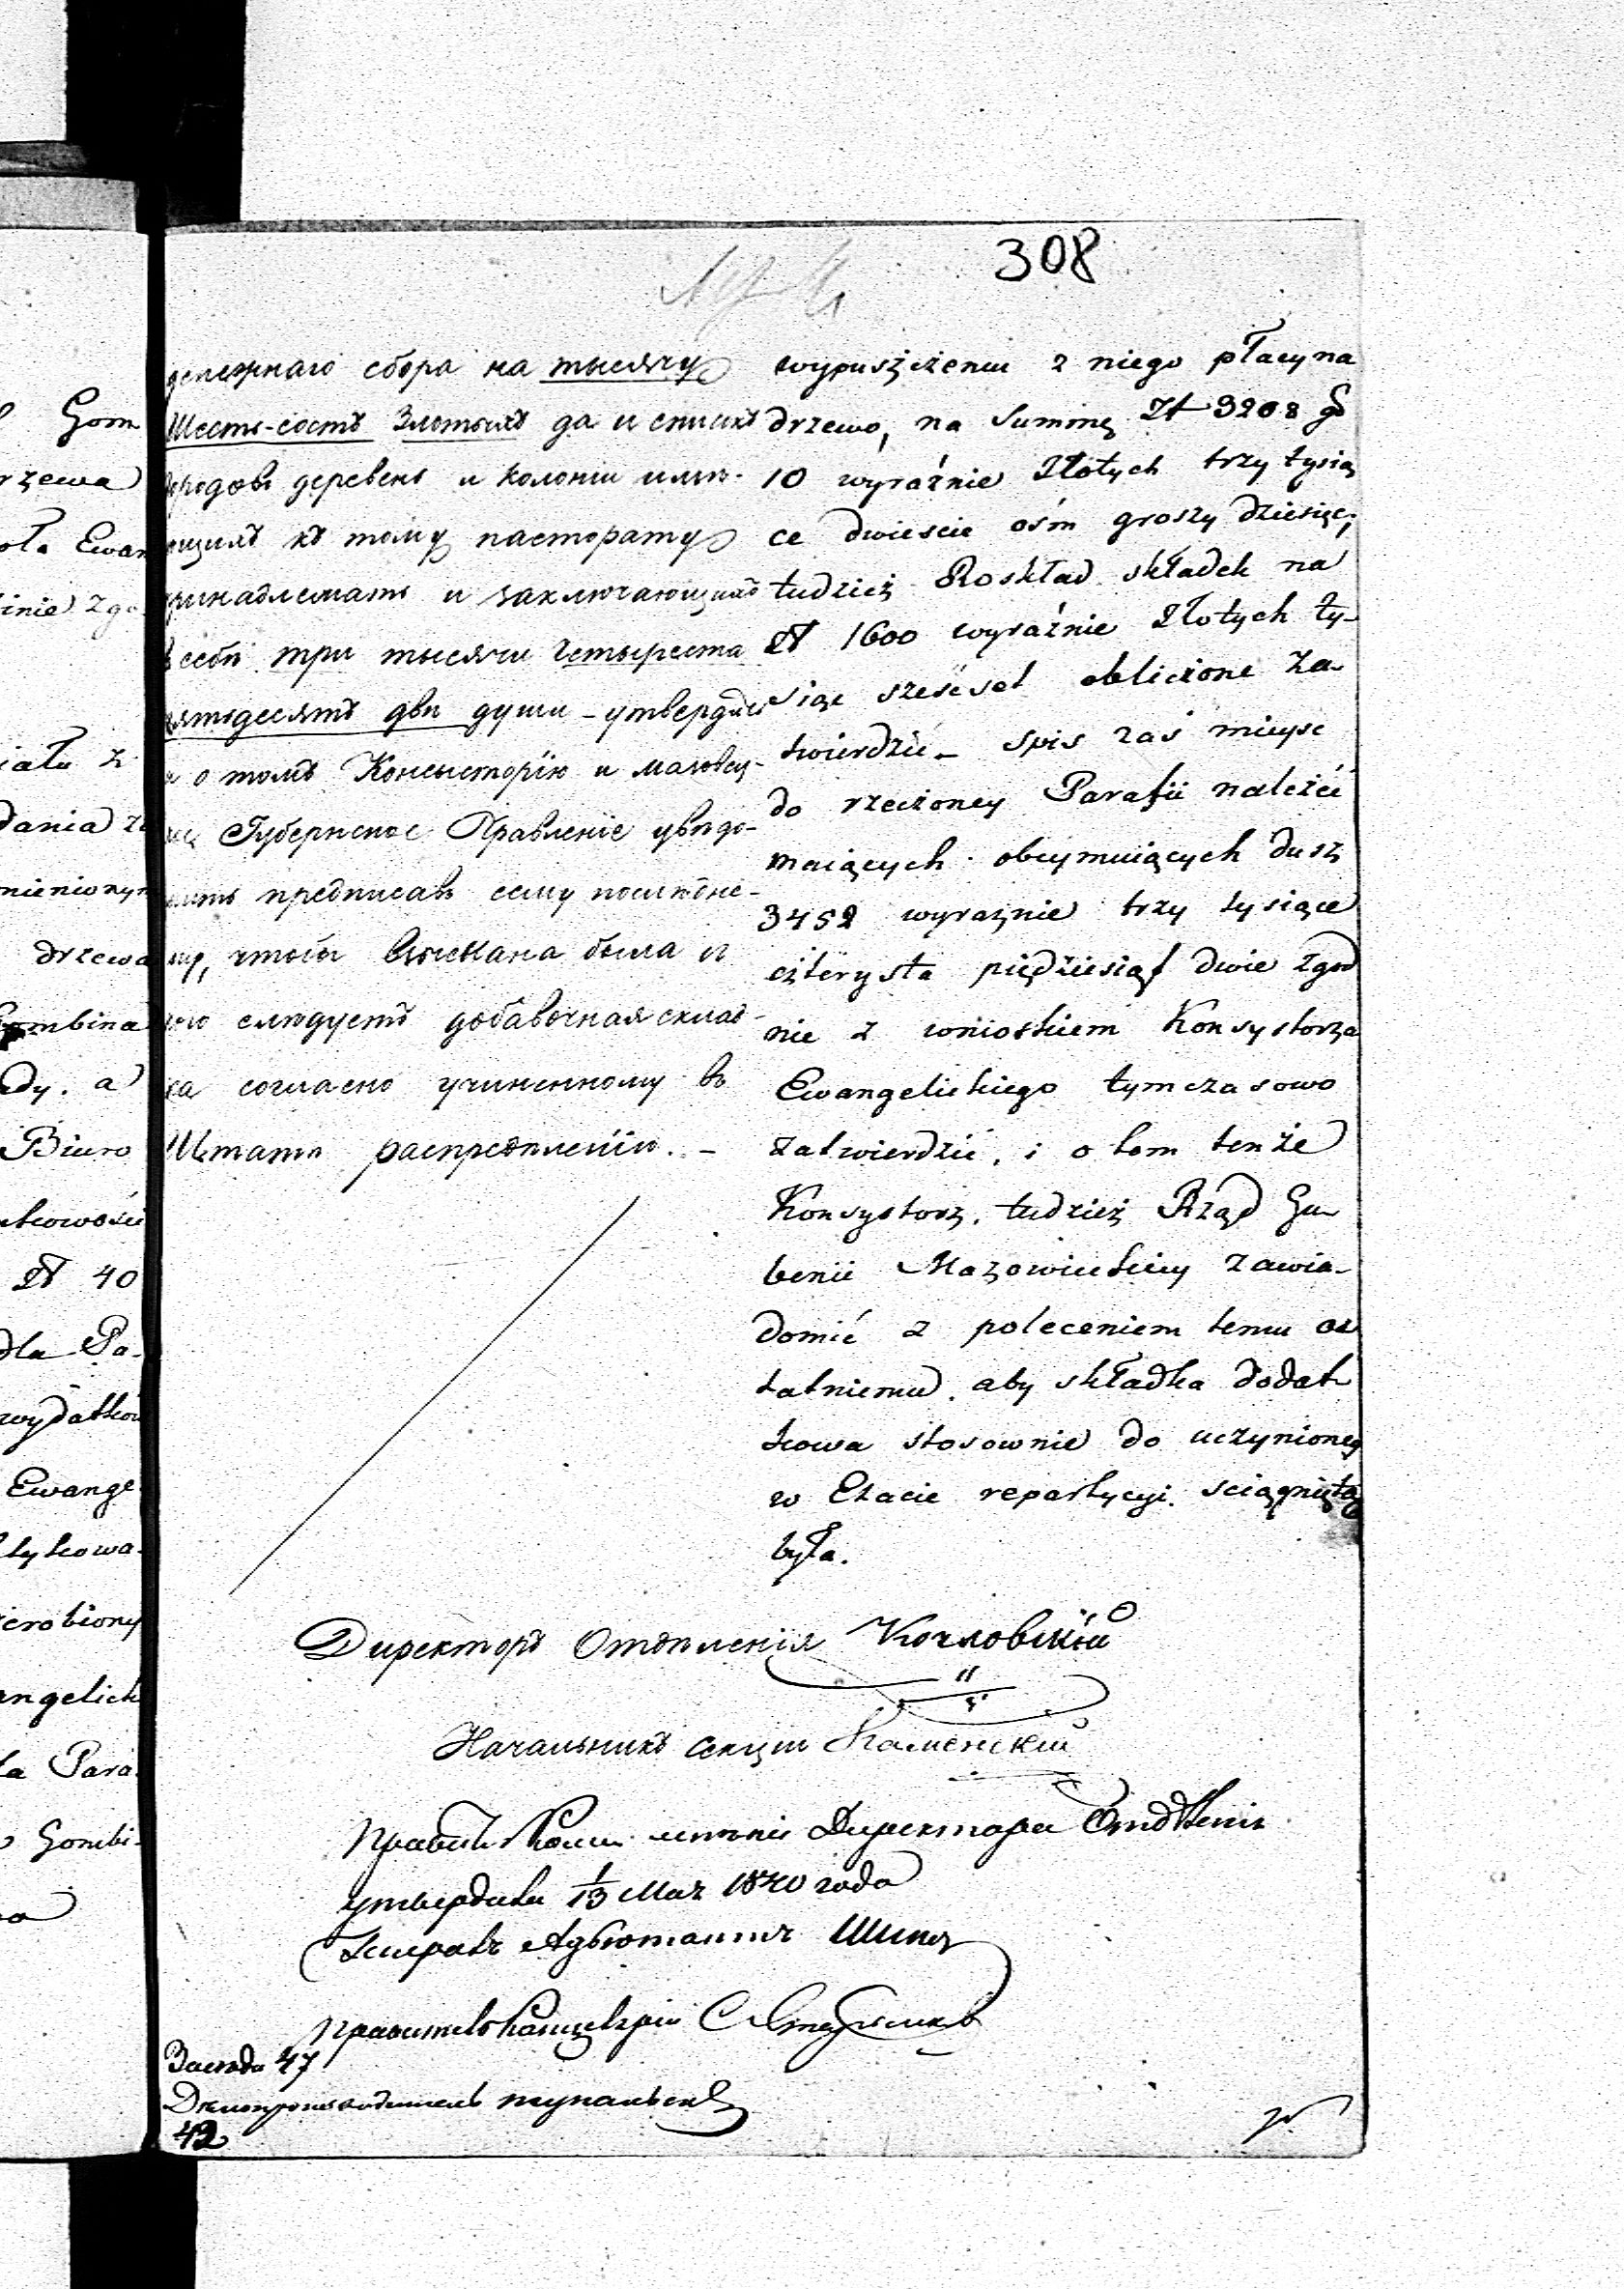 308
денежнаго сбора на тысячу
Шесть-сотъ Злотыхъ да и списки
городовъ деревень и колоніи имѣ-
ющихъ къ тому пасторату
принадлежать и заключающихъ
въ себѣ три тысячи Четыреста
пятьдесятъ двѣ души - утвердить
и о томъ Консисторію и мазовец-
кое Губернское Правленіе увѣдо-
мить предписавъ сему послѣдне-
му, чтобы взыскана была и
кого слѣдуетъ добавочная склад-
ка согласно учиненному въ
Штатѣ распредѣленію. -
wypuszczeniu z niego płacy na
drzewo, na Summę Zł 3208 g
10 wyraźnie Złotych trzy tysią
ce dwieście ośm groszy dziesięć,
tudzież Roskład składek na
Zł 1600 wyraźnie Złotych ty-
siąc sześćset obliczone za-
twierdzić - spis zaś mieysc
do rzeczoney Parafii należéć
maiących obeymuiących dusz
3452 wyraznie trzy tysiące
czterysta pięćdziesiąt dwie zgod
nie z wnioskiem Konsystorza
Ewangelickiego tymczasowo
zatwierdzić, i o tem tenże
Konsystorz, tudzież Rząd Gu-
bernii Mazowieckiey zawia-
domić z poleceniem temu os
tatniemu, aby składka dodat
kowa stosownie do uczynioney
w Etacie repartycyi, sciągniętą
była.
Директоръ Отдѣленія Козловскій
Начальникъ секціи Каменскій
Правит. Комм. мнѣніе Директора Отдѣленія
утвердила 1/13 Мая 1840 года
Генералъ Адъютантъ Шипов
Правитель Канцеляріи
47
Дѣлопроизводитель
42
Gom
rzewa
oła Ewan
inie zgo
iału z
dania z
mienionym
drzewa
Gombina
dy. a
Biuro
utkowości
Zł 40
dla Pa-
wydatków
Ewange
tykowa-
zrobiony
angelick
la Para
Gombi-